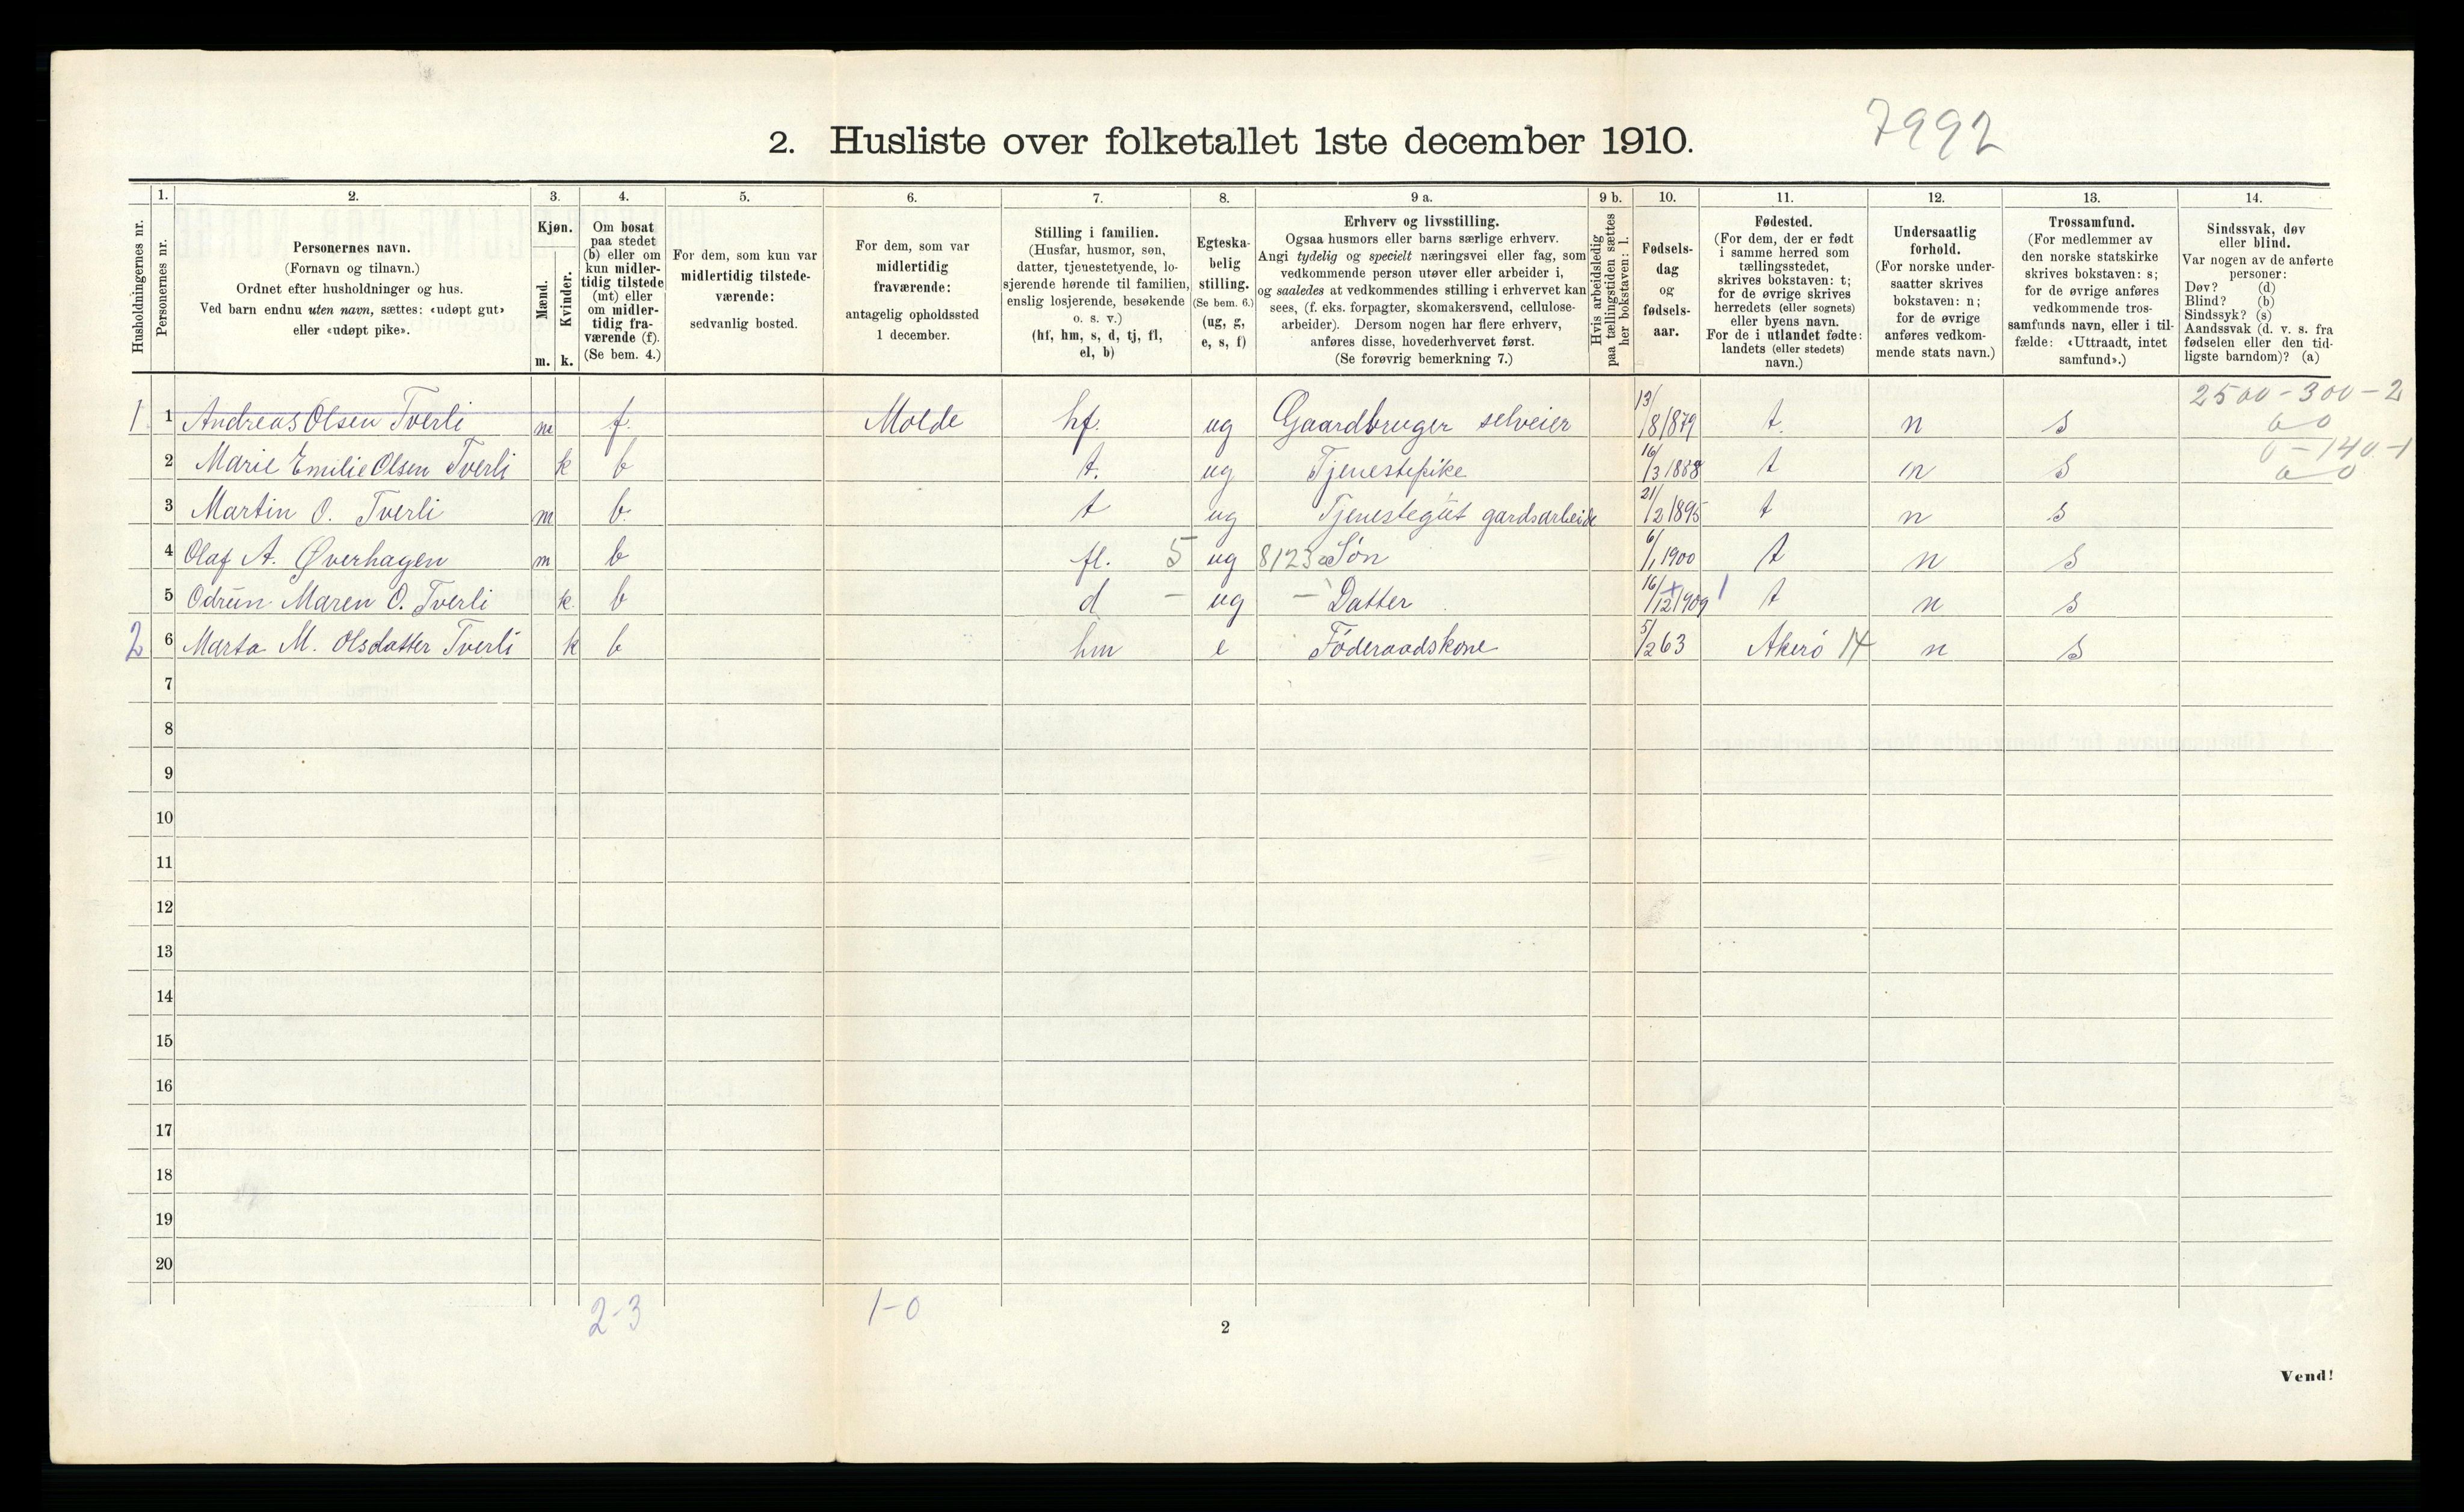 2. Husliste over folketallet 1ste december 1910. 7992
1. 2. 3. 4. 5. 6. 7. 8. 9 a. 9 b. 10. 11. 12. 13. 14.
Husholdningernes nr.
Personernes nr.
Personernes navn.
(Fornavn og tilnavn.)
Ordnet efter husholdninger og hus.
Ved barn endnu uten navn, sættes: «udøpt gut»
eller «udøpt pike».
Kjøn.
Mænd.
Kvinder.
m. k.
Om bosat
paa stedet
(b) eller om
kun midler-
tidig tilstede
(mt) eller
om midler-
tidig fra-
værende (f).
(Se bem. 4.)
For dem, som kun var
midlertidig tilstede-
værende:
sedvanlig bosted.
For dem, som var
midlertidig
fraværende:
antagelig opholdssted
1 december.
Stilling i familien.
(Husfar, husmor, søn,
datter, tjenestetyende, lo-
sjerende hørende til familien,
enslig losjerende, besøkende
o. s. v.)
(hf, hm, s, d, tj, fl,
el, b)
Egteska-
belig
stilling.
(Se bem. 6.)
(ug, g,
e, s, f)
Erhverv og livsstilling.
Ogsaa husmors eller barns særlige erhverv.
Angi tydelig og specielt næringsvei eller fag, som
vedkommende person utøver eller arbeider i,
og saaledes at vedkommendes stilling i erhvervet kan
sees, (f. eks. forpagter, skomakersvend, cellulose-
arbeider). Dersom nogen har flere erhverv,
anføres disse, hovederhvervet først.
(Se forøvrig bemerkning 7.)
Hvis arbeidsledig
paa tællingstiden sættes
her bokstaven: l.
Fødsels-
dag
og
fødsels-
aar.
Fødested.
(For dem, der er født
i samme herred som
tællingsstedet,
skrives bokstaven: t;
for de øvrige skrives
herredets (eller sognets)
eller byens navn.
For de i utlandet fødte:
landets (eller stedets)
navn.)
Undersaatlig
forhold.
(For norske under-
saatter skrives
bokstaven: n;
for de øvrige
anføres vedkom-
mende stats navn.)
Trossamfund.
(For medlemmer av
den norske statskirke
skrives bokstaven: s;
for de øvrige anføres
vedkommende tros-
samfunds navn, eller i til-
fælde: «Uttraadt, intet
samfund».)
Sindssvak, døv
eller blind.
Var nogen av de anførte
personer:
Døv? (d)
Blind? (b)
Sindssyk? (s)
Aandssvak (d. v. s. fra
fødselen eller den tid-
ligste barndom)? (a)
2500-300-2
1 1 Andreas Olsen Tverli m f. Molde hf. ug Gaardbruger selveier 13/8 1879 t. n s
0-140-1
2 Marie Emilie Olsen Tverli k b t. ug Tjenestepike 16/3 1888 t n s
3 Martin O. Tverli m b. t ug Tjenestegut gardsarbeide 21/2 1895 t n s
4 Olaf A. Øverhagen m b fl. 5 ug 8123 Søn 6/1 1900 t n s
5 Odrun Maren O. Tverli k. b d - ug - Datter 16/12 1909 1 t n s
2 6 Marta M. Olsdatter Tverli k b hm e Føderaadskone 5/2 63 Akerø 14 n s
7
8
9
10
11
12
13
14
15
16
17
18
19
20
2-3 1-0
2
Vend!